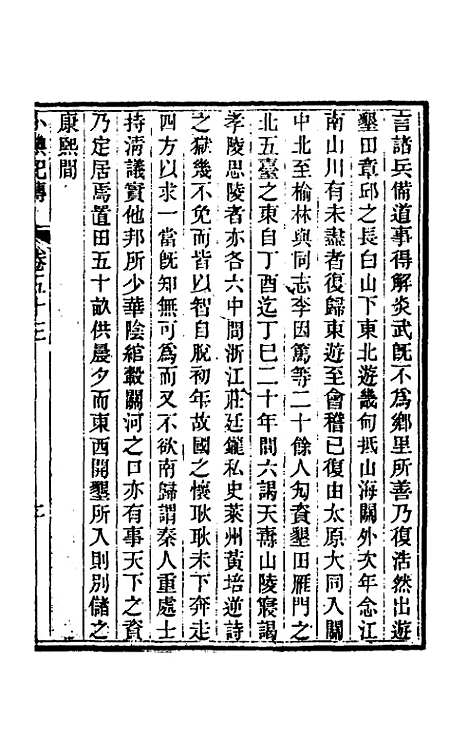 言諮兵備道事得解炎武既不爲鄉里所善乃復浩然出遊
墾田章邱之長白山下東北遊畿甸抵山海關外次年念江
南山川有未盡者復歸東遊至會稽已復由太原大同入關
中北至榆林與同志李因篤等二十餘人匃資墾田雁門之
北五臺之東自丁酉迄丁巳二十年間六謁天壽山陵寢謁
孝陵思陵者亦各六中間浙江莊廷鑨私史萊州黃培逆詩
之獄幾不免而皆以智自脫初年故國之懷耿耿未下奔走
四方以求一當既知無可爲而又不欲南歸謂秦人重處士
持淸議實他邦所少華陰綰轂關河之口亦有事天下之資
乃定居焉置田五十畝供晨夕而東西開墾所入則別儲之
康熙間
小腆紀傳
卷五十三